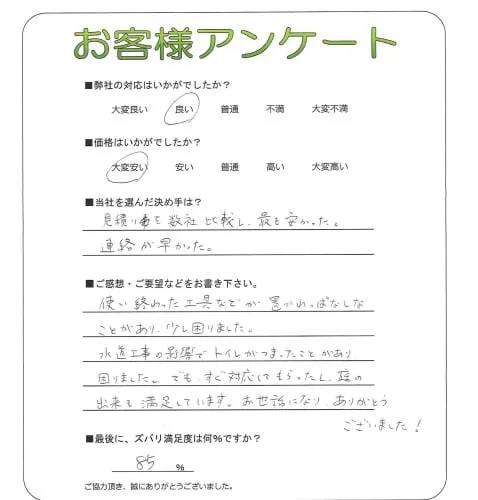 お客様アンケート
■弊社の対応はいかがでしたか?
大変良い 良い 普通 不満 大変不満
■価格はいかがでしたか?
大変安い 安い 普通 高い 大変高い
■当社を選んだ決め手は?
見積り書を数社比較し、最も安かった。
連絡が早かった。
■ご感想・ご要望などをお書き下さい。
使い終わった工具などが置かれっぱなしな
ことがあり、少し困りました。
水道工事の影響でトイレがつまったことがあり
困りました。でも、すぐ対応してもらったし、庭の
出来も満足しています。お世話になり、ありがとう
ございました!
■最後に、ズバリ満足度は何%ですか?
85 %
ご協力頂き、誠にありがとうございました。